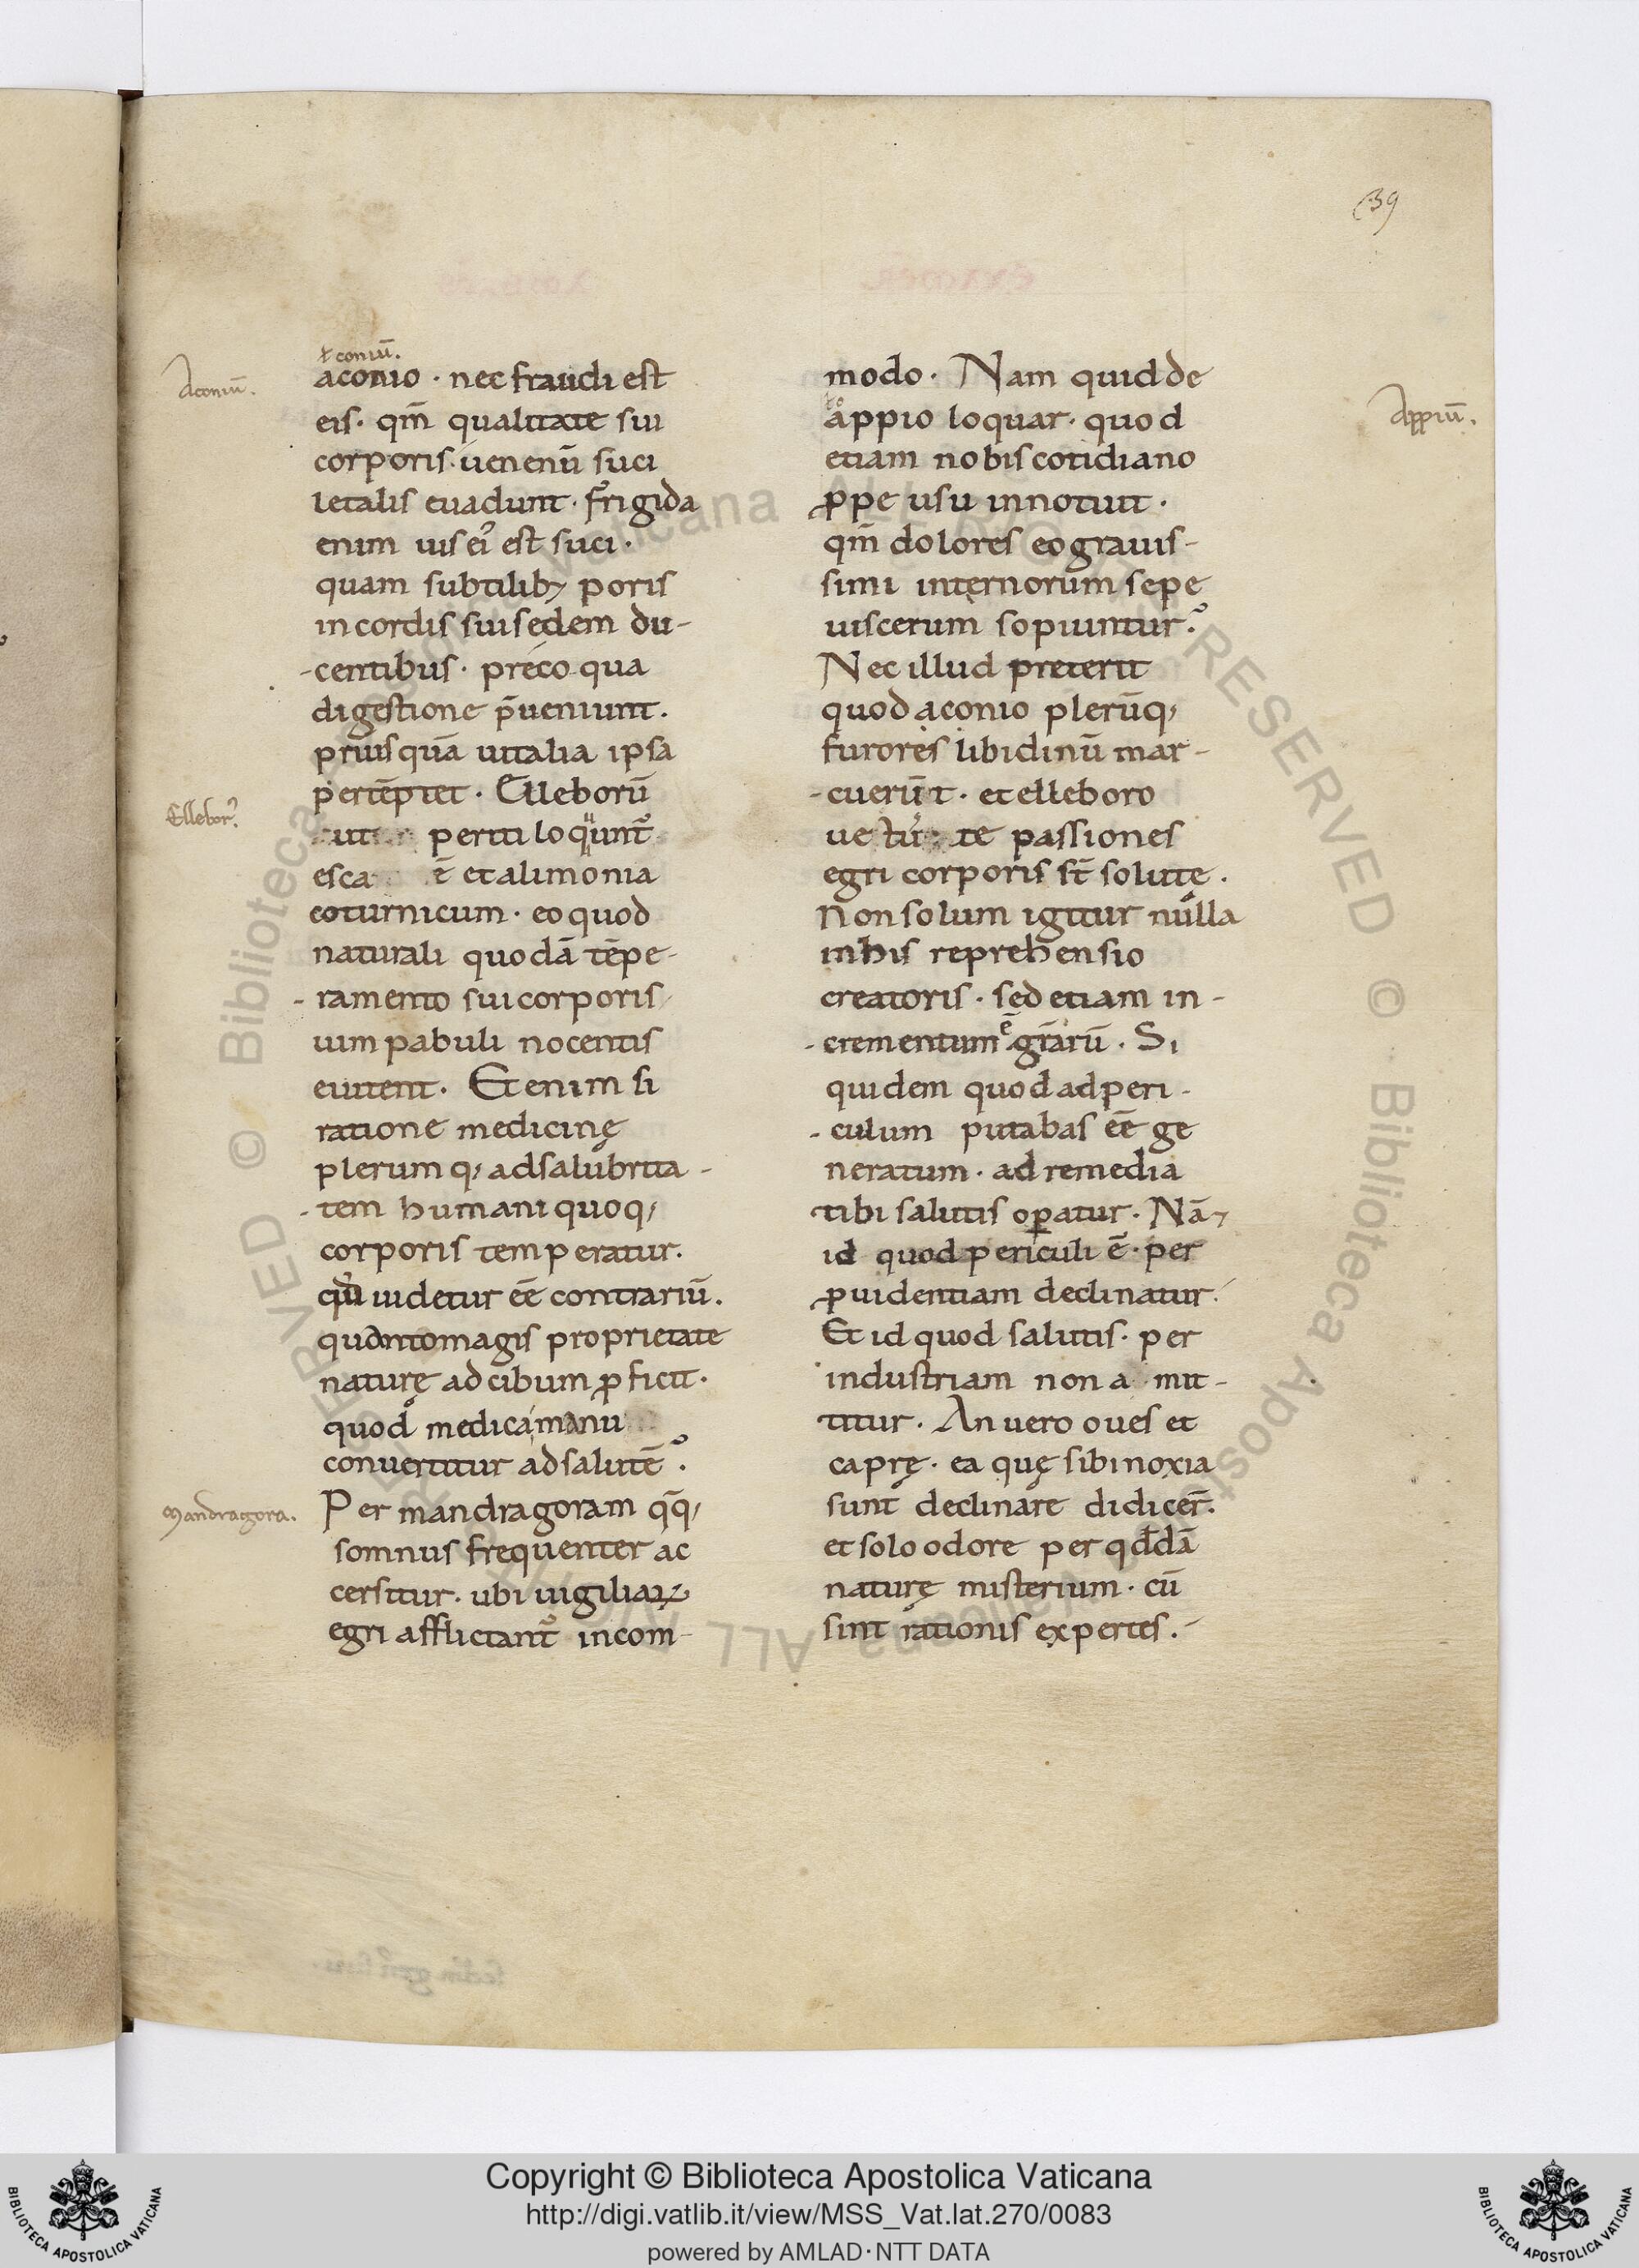 39
ł coniū.
aconio · nec fraudi est
eis · qm̄ qualitate sui
corporis · uenenū suci
letalis euadunt · frigida
enim uis ei᾽ est suci ·
quam subtilib; poris
in cordis sui sedem du-
-centibus · preco qua
digestione p̄ueniunt.
priusquā uitalia ipsa
pertēptet · Elleborū
perιti loquunt᾽
esca ē et alimonia
coturnicum · eo quod
naturali quodā tēpe-
-ramento sui corporis
uim pabuli nocentis
euitent. Et enim si
ratione medicinę
plerumq; ad salubrita-
-tem humani quoq;
corporis temperatur.
cui uidetur eē contrariū.
quanto magis proprietate
naturę ad cibum ꝓficit.
quod medica manu
conuertitur ad salutē?
Per mandragoram q̄q;
somnus frequenter ac
cersitur · ubi uigiliaꝝ
egri afflictant᾽ incom-
Aconiū.
Ellebor᾽.
Mandragora.
modo · Nam quid de
appio loquar · quod
etiam nobis cotidiano
ꝓpe usu innotuit ·
qm̄ dolores eo grauis-
simi internorum sepe
uiscerum sopiuntur?
Nec illud preterit
quod aconio plerūq;
furores libidinū mar-
-cuerūt · et elleboro
passiones
egri corporis st̄ solutę.
Non solum igitur nulla
in his reprehensio
creatoris · sed etiam in-
-crementum ē gr̄arū · Si
quidem quod ad peri-
-culum putabas eē ge
neratum · ad remedia
tibi salutis oꝑatur · Nā
id quod periculi ē · per
ꝓuidentiam declinatur.
Et id quod salutis · per
industriam non a mit-
titur. An uero oues et
caprę · ea quę sibi noxia
sunt declinare didicer̄.
et solo odore per qddā
naturę misterium · cū
sint rationis expertes.
Appiū.
Copyright © Biblioteca Apostolica Vaticana
http://digi.vatlib.it/view/MSS_Vat.lat.270/0083
powered by AMLAD·NTT DATA
BIBLIOTECA APOSTOLICA VATICANA
BIBLIOTECA APOSTOLICA VATICANA